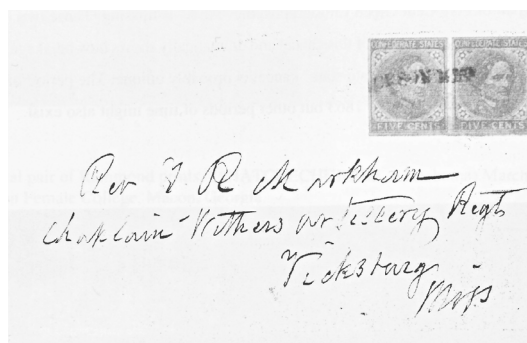 CONFEDERATE STATES CONFEDERATE STATES
FIVE CENTS FIVE CENTS
Rev T R Markham
Chaplain Withers Artillery Regt
Vicksburg
Miss